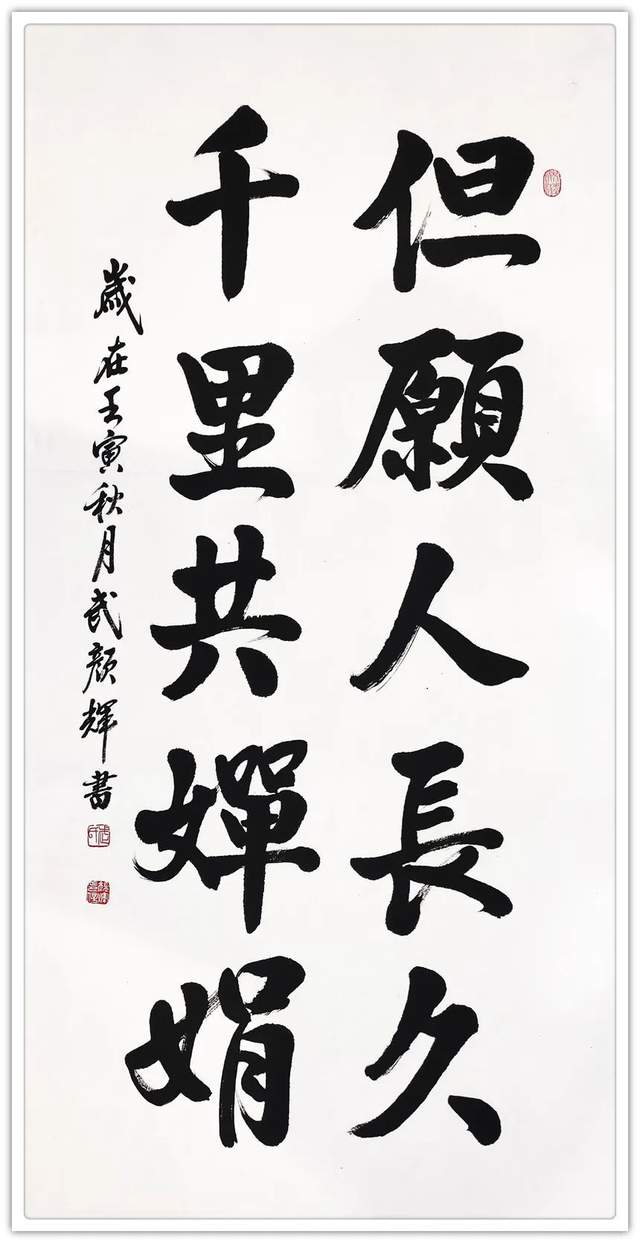 但願人長久
千里共嬋娟
歲在壬寅秋月武顏輝書